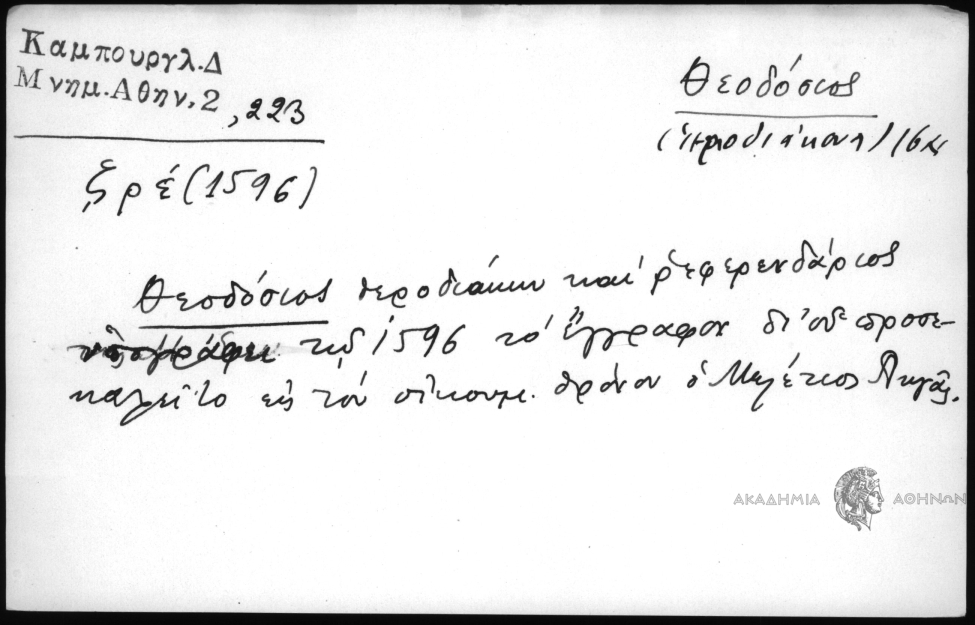 Καμπουργλ.Δ
Μνημ.Αθην.2, 223
Θεοδόσιος
(ἱεροδιάκων)
ζρέ (1596)
Θεοδόσιος ἱεροδιάκων καὶ ῥεφερενδάριος
ὑπογράφει τῷ 1596 τὸ ἔγγραφον δι' οὗ προσε-
καλεῖτο εἰς τὸν οἰκουμ. θρόνον ὁ Μελέτιος Πηγᾶς.
ΑΚΑΔΗΜΙΑ ΑΘΗΝΩΝ